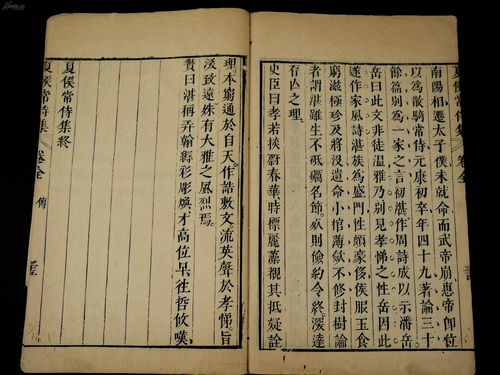 夏侯常侍集 卷全
南陽相遷太子僕未就命而武帝崩惠帝即位
以為散騎常侍元康初卒年四十九著論三十
餘篇別為一家之言初湛作周詩成以示潘岳
岳曰此文非徒溫雅乃別見孝悌之性岳因此
遂作家風詩湛族為盛門性頗豪侈侯服玉食
窮滋極珍及將沒遺命小棺薄斂不修封樹論
者謂湛雖生不砥礪名節死則儉約令終深達
存亡之理
史臣曰孝若掞蔚春華時標麗藻覩其抵疑詮
理本窮通於自天作誥敷文流英聲於孝悌旨
深致遠殊有大雅之風烈焉
贊曰湛稱弄翰縟彩彫煥才高位卑往哲攸嘆
夏侯常侍集終
夏侯常侍集 卷全 傳